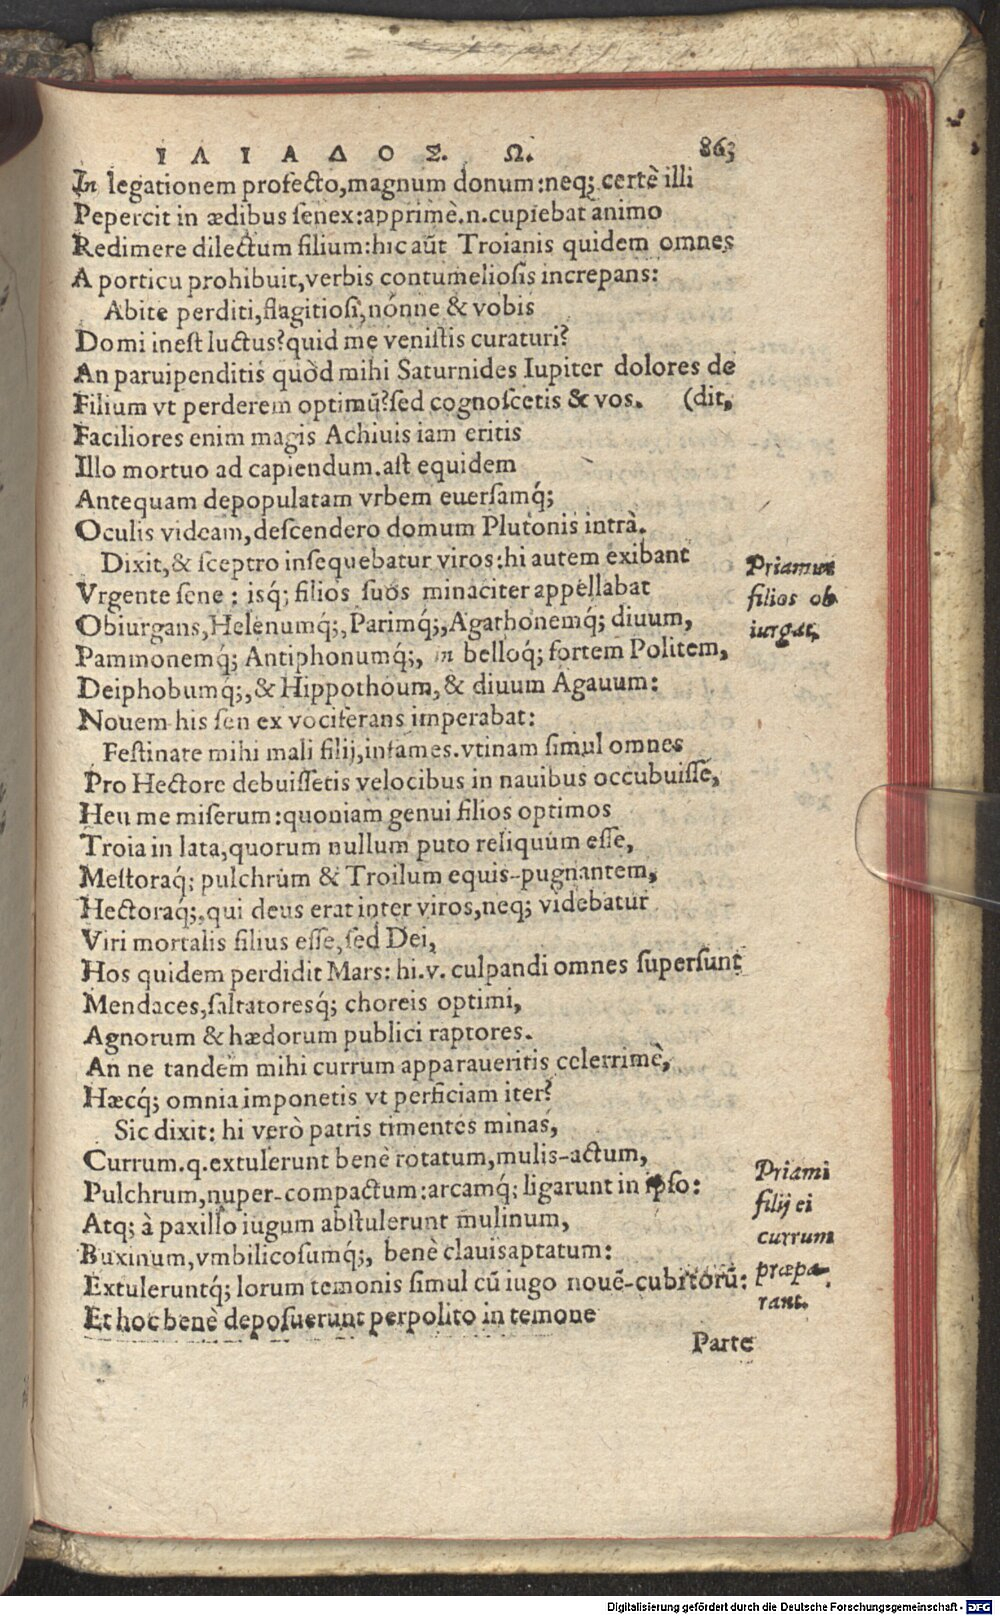 ΙΛΙΑΔΟΣ. Ω. 863
In legationem profecto,magnum donum:neq; certè illi
Pepercit in ædibus ſenex:apprimè.n.cupiebat animo
Redimere dilectum filium:hic aūt Troianis quidem omnes
A porticu prohibuit,verbis contumelioſis increpans:
Abite perditi,flagitioſi,nónne & vobis
Domi ineſt luctus?quid me veniſtis curaturi?
An paruipenditis quòd mihi Saturnides Iupiter dolores de
Filium vt perderem optimū?ſed cognoſcetis & vos. (dit,
Faciliores enim magis Achiuis iam eritis
Illo mortuo ad capiendum.aſt equidem
Antequam depopulatam vrbem euerſamq́;
Oculis videam,deſcendero domum Plutonis intrà.
Dixit,& ſceptro inſequebatur viros:hi autem exibant
Vrgente ſene: isq́; filios ſuos minaciter appellabat
Obiurgans,Helenumq́;,Parimq́;,Agathonemq́; diuum,
Pammonemq́; Antiphonumq́;, in belloq́; fortem Politem,
Deiphobumq́;,& Hippothoum,& diuum Agauum:
Nouem his ſen ex vociferans imperabat:
Feſtinate mihi mali filij,infames.vtinam ſimul omnes
Pro Hectore debuiſſetis velocibus in nauibus occubuiſſe,
Heu me miſerum:quoniam genui filios optimos
Troia in lata,quorum nullum puto reliquum eſſe,
Meſtoraq́; pulchrùm & Troilum equis-pugnantem,
Hectoraq́;,qui deus erat inter viros,neq; videbatur
Viri mortalis filius eſſe,ſed Dei,
Hos quidem perdidit Mars: hi.v. culpandi omnes ſuperſunt
Mendaces,ſaltatoresq́; choreis optimi,
Agnorum & hædorum publici raptores.
An ne tandem mihi currum apparaueritis celerrimè,
Hæcq́; omnia imponetis vt perficiam iter?
Sic dixit: hi verò patris timentes minas,
Currum.q.extulerunt benè rotatum,mulis-actum,
Pulchrum,nuper-compactum:arcamq́; ligarunt in ipſo:
Atq; à paxillo iugum abſtulerunt mulinum,
Buxinum,vmbilicoſumq́;, benè clauisaptatum:
Extuleruntq́; lorum temonis ſimul cū iugo nouē-cubitorū:
Et hoc benè depoſuerunt perpolito in temone
Parte
Priamus
filios ob
iurgat.
Priami
filij ei
currum
præpa-
rant.
Digitalisierung gefördert durch die Deutsche Forschungsgemeinschaft - DFG